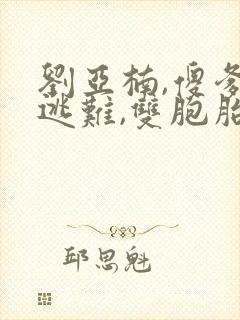 劉亞楠,傻爹
逃難,雙胞胎
邱思魁